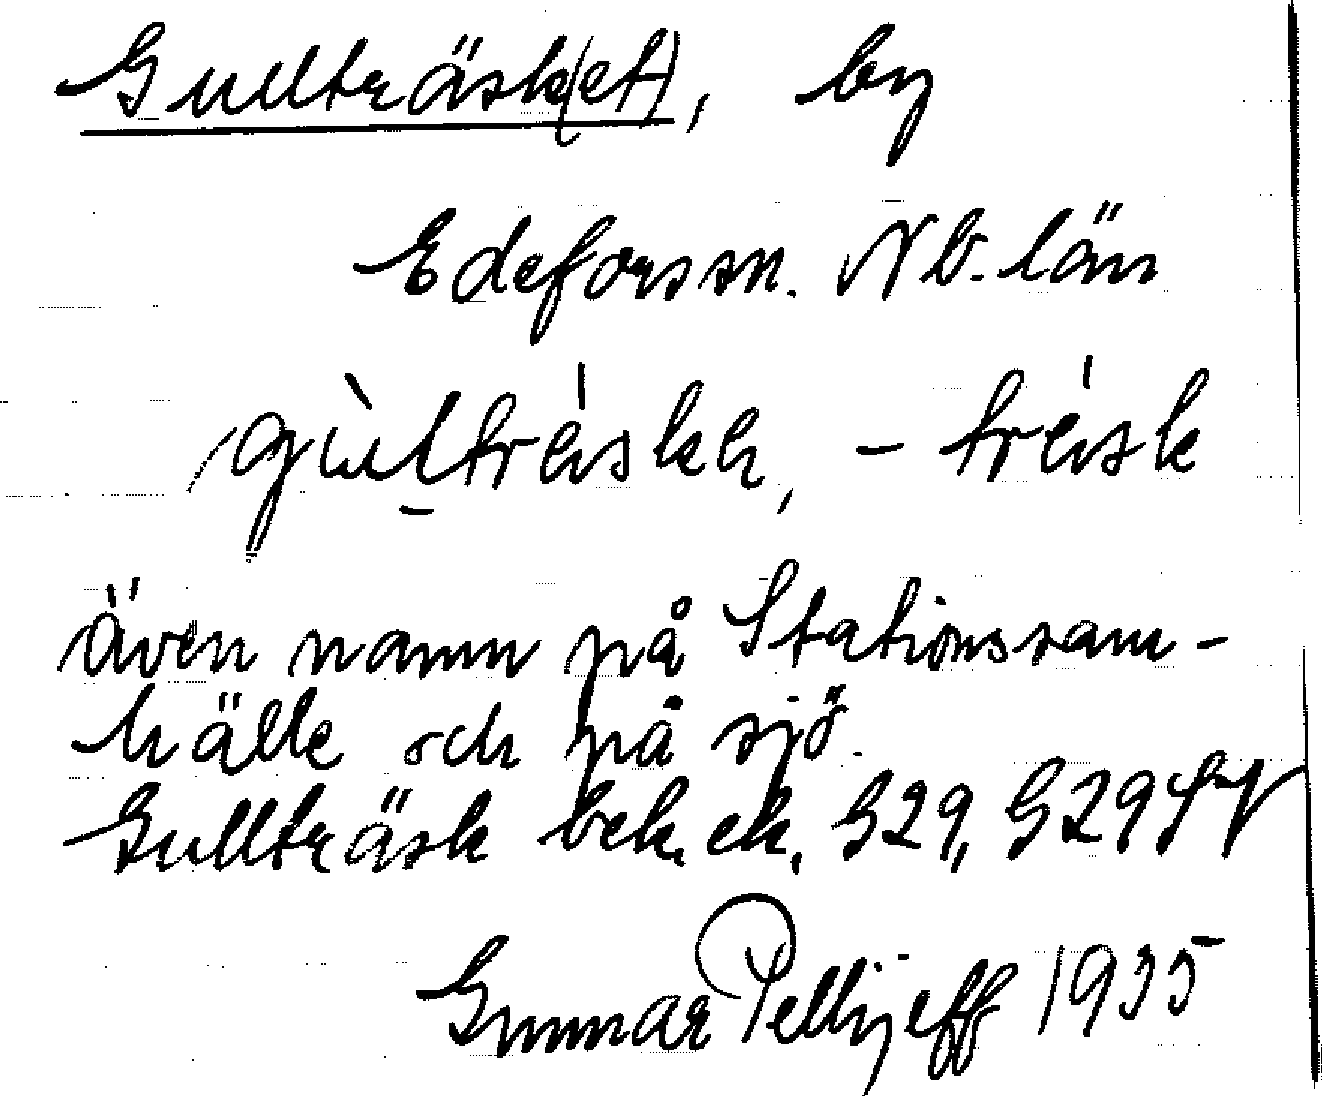 Gullträsk(et), by
Edefors sn. Nb. län
gùl̠tréskh, - trésk
även namn på Stationssam-
hälle och på sjö.
Gullträsk bek, ek, G29, G29
Gunnar Pellijeff 1935